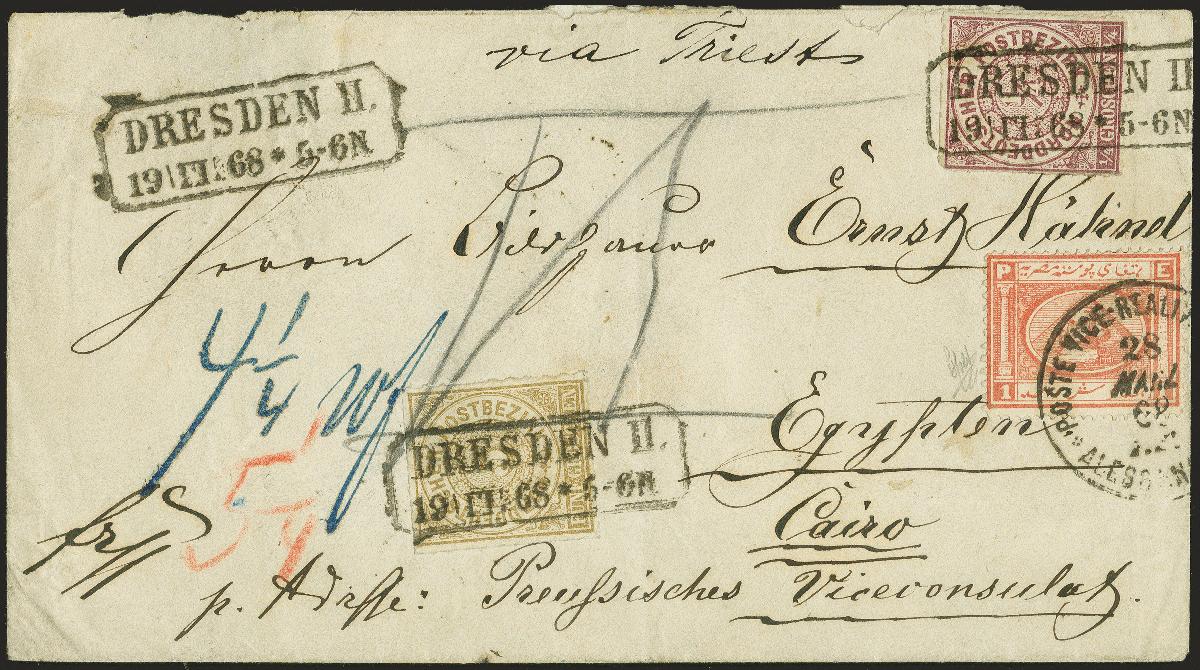 via Triest
DRESDEN II.
19 III 68 * 5-6N
NORDDEUTSCHER POSTBEZIRK
1/4
DRESDEN II
19 III 68 * 5-6N
Herrn Ernst
P E
1 1
POSTE VICE-REALI
28
MARZ
ALESSAN
4 1/4 Wf
5 1/4
POSTBEZI
DRESDEN II.
19 III 68 * 5-6N
Egypten
Cairo
p. Adresse: Preußisches Viceconsulat.